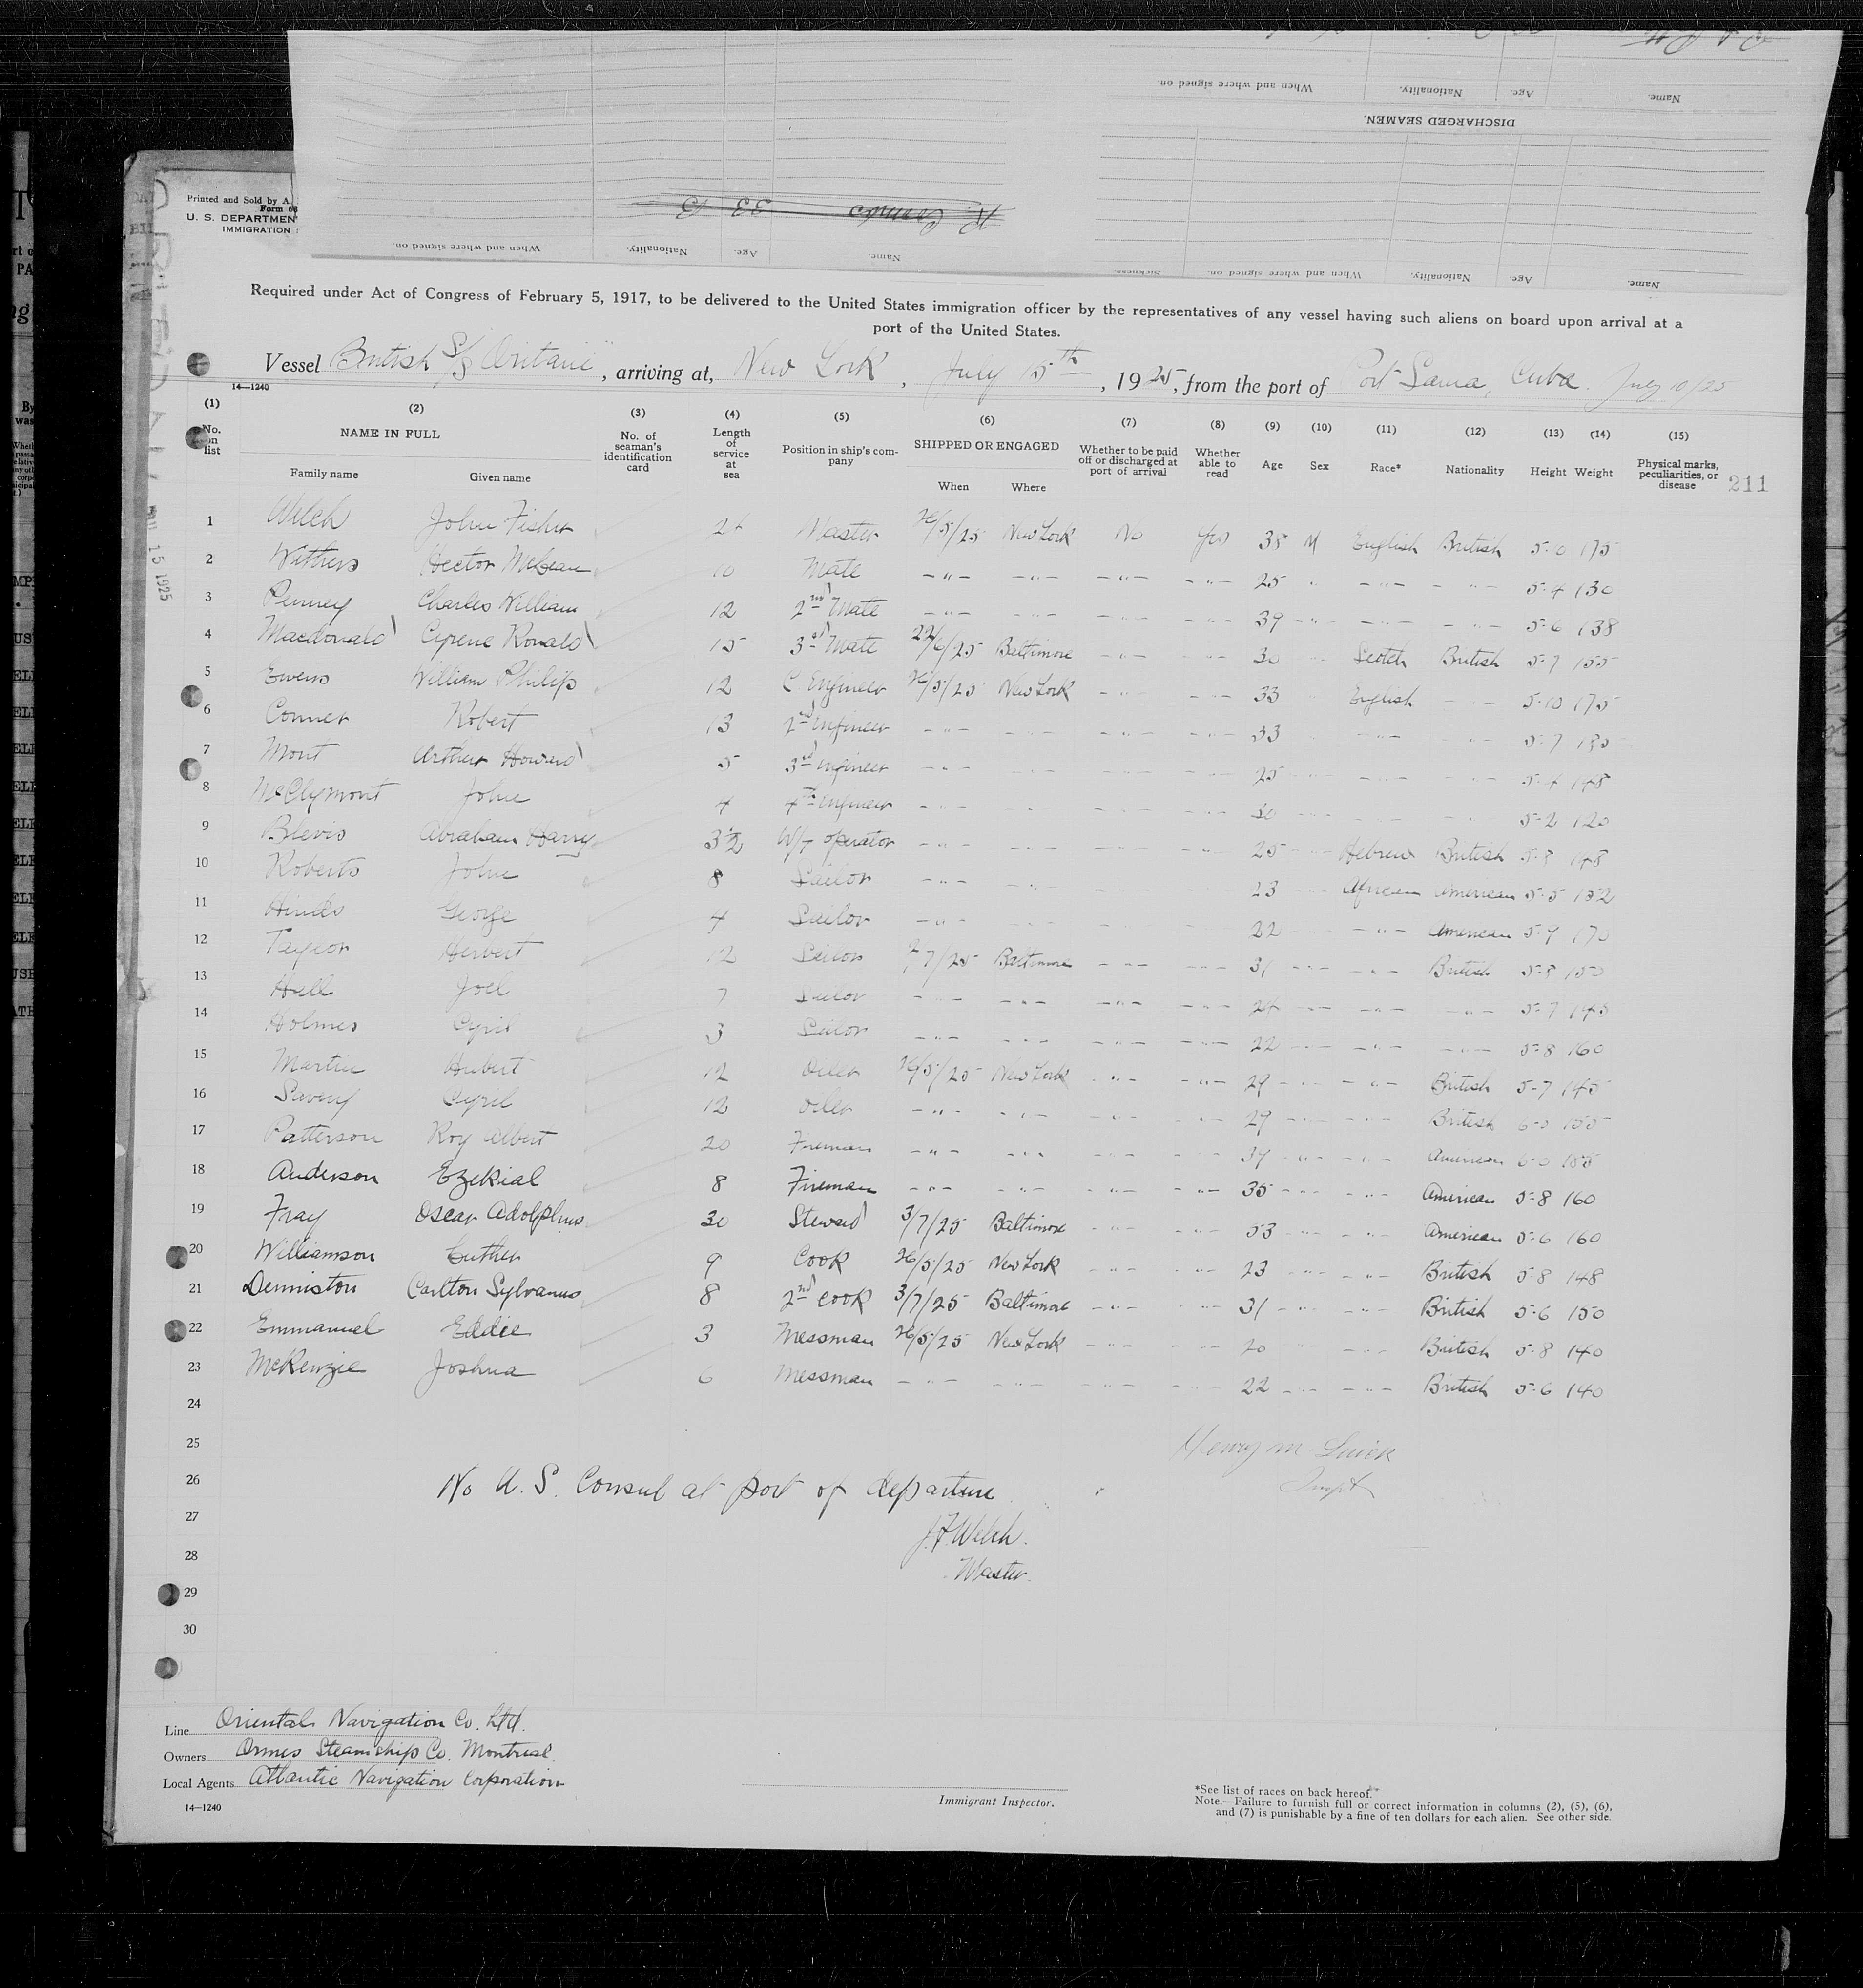 Name. Age. Nationality. When and where signed on.
DISCHARGED SEAMEN.
33 B
Name. Age. Nationality. When and where signed on.
Name. Age. Nationality. When and where signed on. Sickness.
Printed and Sold by A.
Form 68
U. S. DEPARTMEN
IMMIGRATION
Required under Act of Congress of February 5, 1917, to be delivered to the United States immigration officer by the representatives of any vessel having such aliens on board upon arrival at a
port of the United States.
Vessel British S/S , arriving at, New York , July 15th , 1925, from the port of Port Sama, Cuba. July 10/25
14—1240
(1) (2) (3) (4) (5) (6) (7) (8) (9) (10) (11) (12) (13) (14) (15)
No. on list NAME IN FULL No. of seaman's identification card Length of service at sea Position in ship's company SHIPPED OR ENGAGED Whether to be paid off or discharged at port of arrival Whether able to read Age Sex Race* Nationality Height Weight Physical marks, peculiarities, or disease 211
Family name Given name When Where
1 Welch John Fisher 2+ Master 26/5/25 New York No Yes 38 M English British 5-10 175
2 Withers Hector McLean 10 Mate -"- -"- -"- -"- 25 " -"- -"- 5-4 130
3 Penney Charles William 12 2nd Mate -"- -"- -"- -"- 39 -"- -"- -"- 5-6 138
4 Macdonald Cyrene Ronald 15 3rd Mate 22/6/25 Baltimore -"- -"- 30 -"- Scotch British 5-7 155
5 Ewens William Philip 12 C Engineer 26/5/25 New York -"- -"- 33 English -"- 5-10 175
6 Conner Robert 13 2nd Engineer -"- -"- -"- -"- 33 -"- -"- 5-7 180
7 Mont Arthur Howard 5 3rd Engineer -"- -"- -"- -"- 25 -"- -"- 5-4 148
8 McClymont John 4 4th Engineer -"- -"- -"- -"- -"- -"- 5-2 120
9 Blevis Abraham Harry 3½ W/T operator -"- -"- -"- -"- 25 -"- Hebrew British 5-8 148
10 Roberts John 8 Sailor -"- -"- -"- -"- 23 -"- African American 5-5 152
11 Hinds George 4 Sailor -"- 22 -"- American 5-7 170
12 Taylor Herbert 12 Sailor 2/7/25 Baltimore -"- -"- 31 -"- -"- British 5-8 150
13 Hall Joel 7 Sailor -"- -"- -"- -"- 24 -"- -"- -"- 5-7 145
14 Holmes Cyril 3 Sailor -"- -"- -"- -"- 22 -"- -"- -"- 5-8 160
15 Martin Hubert 12 Oiler 26/5/25 New York -"- -"- 29 -"- -"- British 5-7 145
16 Cyril 12 Oiler -"- -"- -"- -"- 29 -"- -"- British 6-0 155
17 Patterson Roy Albert 20 Fireman -"- -"- -"- -"- 37 -"- -"- American 6-0 185
18 Anderson Ezekial 8 Fireman -"- -"- -"- -"- 35 -"- -"- American 5-8 160
19 Fray Oscar Adolphus 30 Steward 3/7/25 Baltimore -"- -"- 53 -"- -"- American 5-6 160
20 Williamson Luther 9 Cook 26/5/25 New York -"- -"- 23 -"- -"- British 5-8 148
21 Denniston Carlton Sylvanus 8 2nd Cook 3/7/25 Baltimore -"- -"- 31 -"- -"- British 5-6 150
22 Emmanuel Eddie 3 Messman 26/5/25 New York -"- -"- 20 -"- -"- British 5-8 140
23 McKenzie Joshua 6 Messman -"- -"- -"- -"- 22 -"- -"- British 5-6 140
24
25 Henry M.
26 No U. S. Consul at port of departure Inspt
27 J.F. Welch.
28 Master.
29
30
15 1925
Line Oriental Navigation Co. Ltd.
Owners Ormes Steamship Co. Montreal.
Local Agents Atlantic Navigation Corporation
14—1240
Immigrant Inspector.
*See list of races on back hereof.
Note.—Failure to furnish full or correct information in columns (2), (5), (6),
and (7) is punishable by a fine of ten dollars for each alien. See other side.